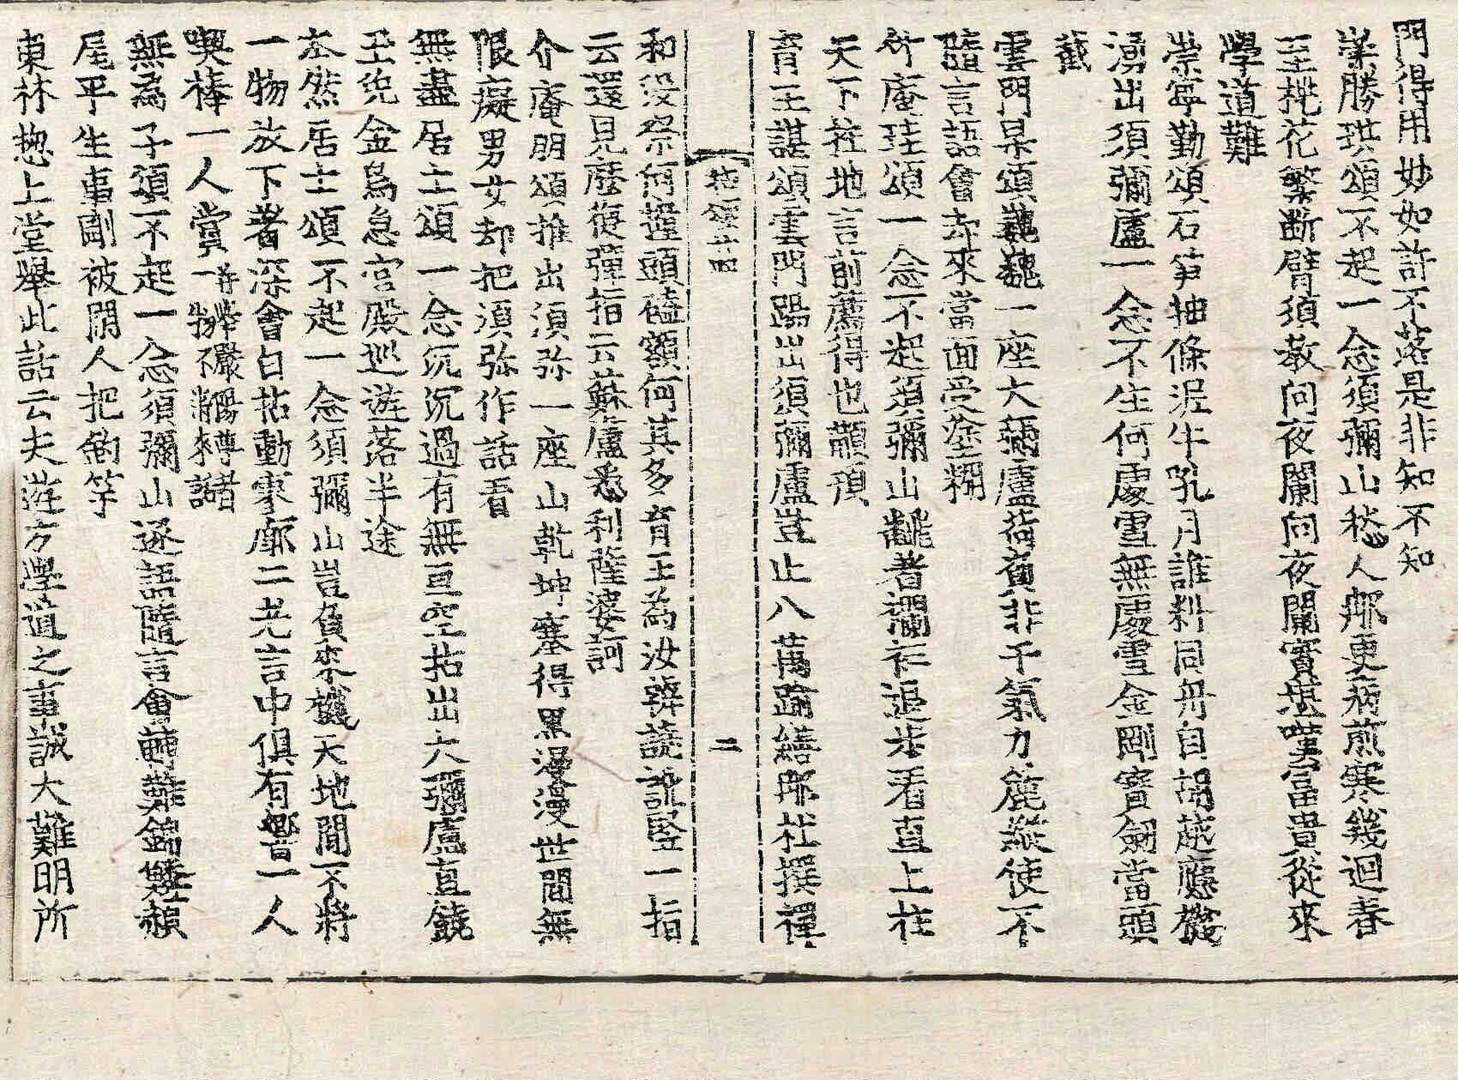 門得用妙如許不落是非知不知
崇勝珙頌不起一念須彌山愁人那更病煎寒幾迴春
至桃花繁斷臂須教向夜闌向夜闌實堪嘆富貴從來
學道難
崇寧勤頌石笋抽條泥牛吼月誰料同舟自胡越應機
湧出須彌盧一念不生何處雪無處雪金剛寶劒當頭
截
雲門杲頌巍巍一座大彌盧荷負非干氣力麁縱使不
隨言語會亦來當面受塗糊
竹庵珪頌一念不起須彌山齪者瀾衫退步看直上柱
天下柱地言前薦得也顢頇
育王諶頌雲門踢出須彌盧豈止八萬踰繕那杜撰禪
拈頌廿四
二
和没柰何擡頭磕額何其多育王為汝辨諕訛竪一指
云還見麽復彈指云蘇盧悉利薩婆訶
介庵朋頌推出須弥一座山乾坤塞得黑漫漫世間無
限癡男女却把須弥作話看
無盡居士頌一念沉沉過有無亘空拈出大彌盧直饒
玉兎金烏急宮殿巡遊落半途
本然居士頌不起一念須彌山豈負來機天地間不將
一物放下著深會白拈動寥廓二老言中俱有響一人
喫棒一人賞并舉嚴陽尊者一物不將來話
無為子頌不起一念須彌山逐語隨言會轉難錦鱗赬
尾平生事剛被閑人把釣竿
東林惣上堂舉此話云夫遊方學道之事誠大難明所